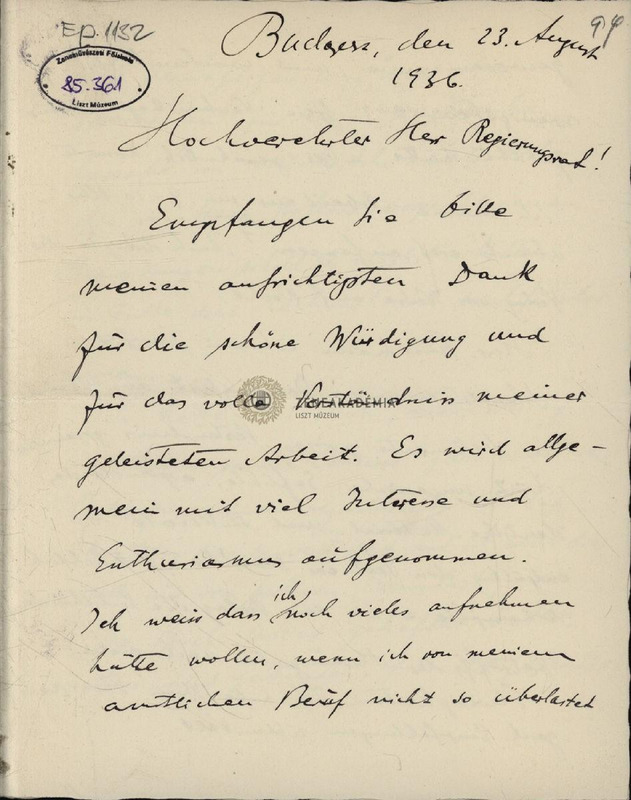 Ep. 1132
94
Zeneművészeti Főiskola
85.361
Liszt Múzeum
Budapest, den 23. August
1936.
Hochverehrter Herr Regierungsrat!
Empfangen Sie bitte
meinen aufrichtigsten Dank
für die schöne Würdigung und
für das volle Verständniss meiner
geleisteten Arbeit. Es wird allge-
mein mit viel Interesse und
Enthusiasmus aufgenommen.
Ich weiss dass ich noch vieles aufnehmen
hätte wollen, wenn ich von meinem
amtlichen Beruf nicht so überlastet
ZENEAKADÉMIA
LISZT MÚZEUM